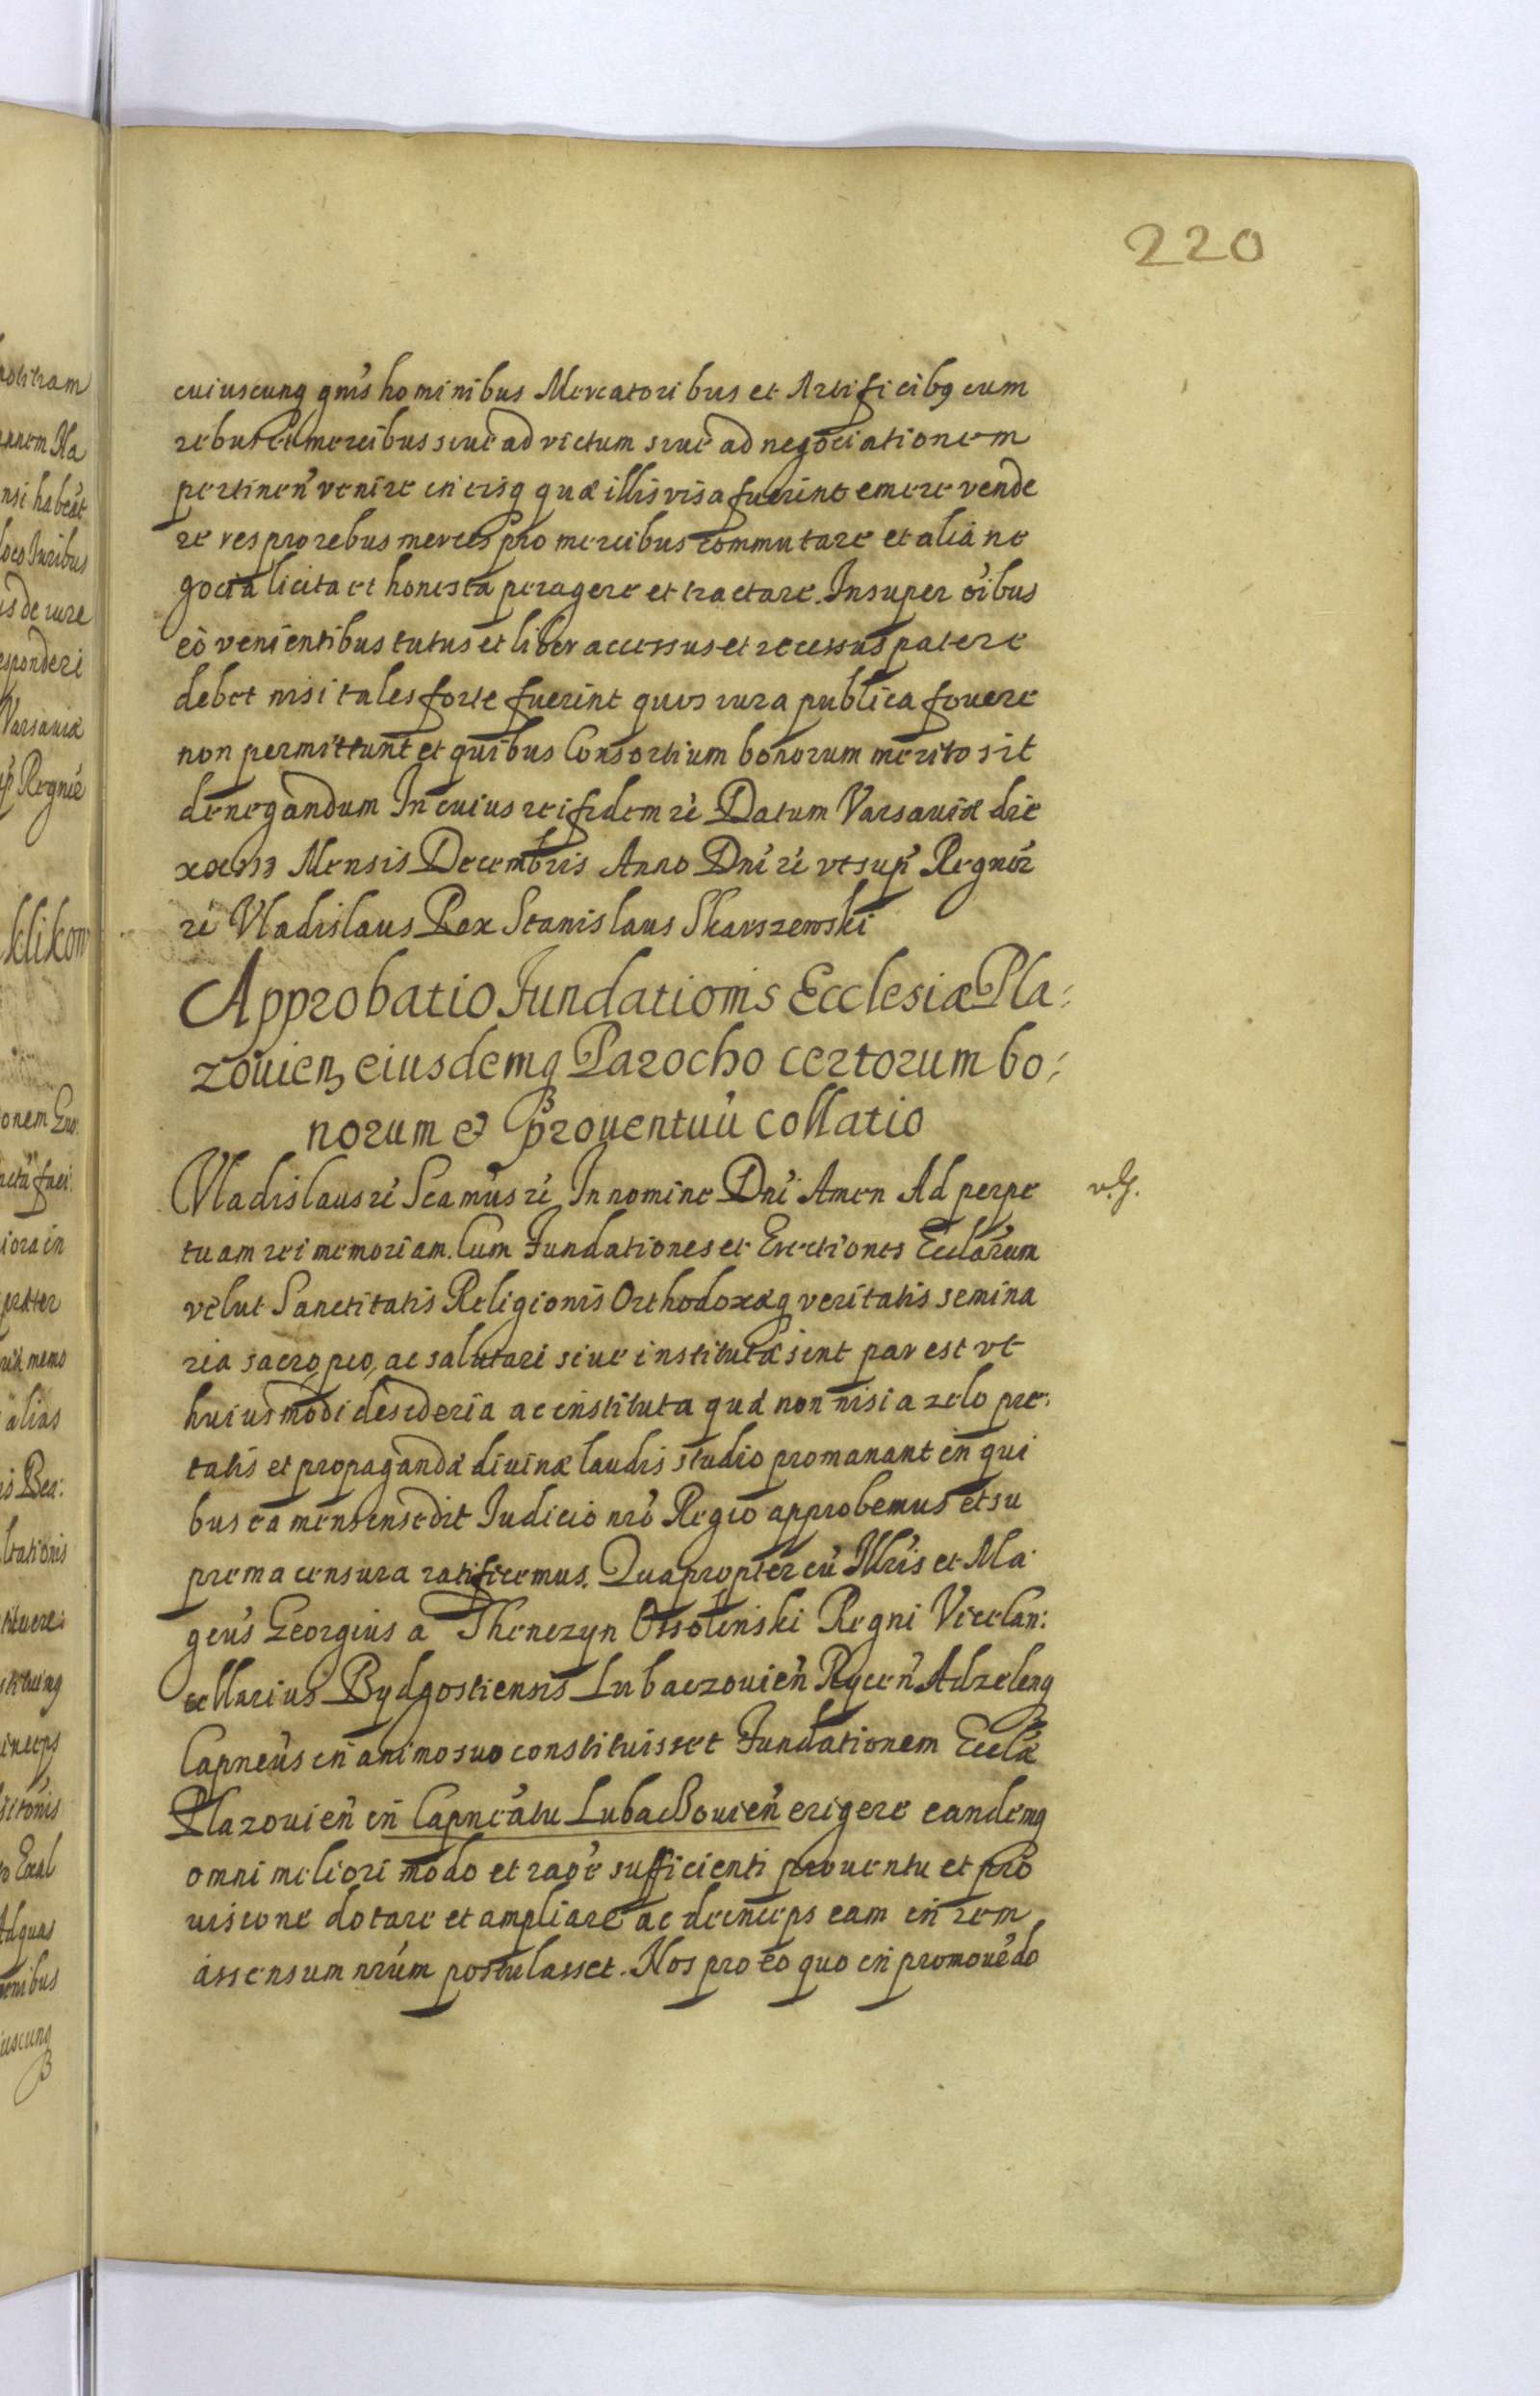 220
cuiuscunq gnis hominibus Mercatoribus et Artificibq cum
rebus et mercibus siue ad victum siue ad negociationem
pertinen̄ venire in eisq quæ illis visa fuerint emere vende
re res pro rebus merces pro mercibus commutare et alia ne
gocia licita et honesta peragere et tractare. Insuper oībus
eò venientibus tutus et liber accessus et recessus patere
debet nisi tales forte fuerint quos iura publica fovere
non permittunt et quibus Consortium bonorum merito sit
denegandum In cuius rei fidem rē Datum Varsaviæ die
Mensis Decembris Anno Dnī rē vt sup̄ Regnor̄
rē Vladislaus Rex Stanislaus Skarszewski
Approbatio Fundationis Ecclesiæ Pla:
zouien̄ eiusdemq Parocho certorum bo:
norum & prouentuū collatio
Vladislaus rē Sca mus rē In nomine Dnī Amen Ad perpe
v. G.
tuam rei memoriam. Cum Fundationes et Erectiones Ecclārum
velut Sanctitatis Religionis Orthodoxæq veritatis semina
ria sacro, pio, ac salutari siue instituta sint par est vt
huiusmodi desideria ac instituta quæ non nisi a zelo pie:
tatis et propagandæ diuinæ laudis studio promanant in qui
bus ea mens insedit Iudicio nrō Regio approbemus et su
prema censura ratificemus. Quapropter cū Illris et Ma
gcus Georgius a Thenczyn Ossolinski Regni Vicecan:
cellarius Bydgostiensis Lubaczouien̄ Rycen̄ Adzelenq
Capneūs in animo suo constituisset Fundationem Ecclæ
Plazouien̄ in Capneātu Lubaczouien̄ erigere eandemq
omni meliori modo et raōe sufficienti prouentu et pro
uisione dotare et ampliare ac deinceps eam in rem
assensum nrūm postulasset. Nos pro eo quo in promouēdo